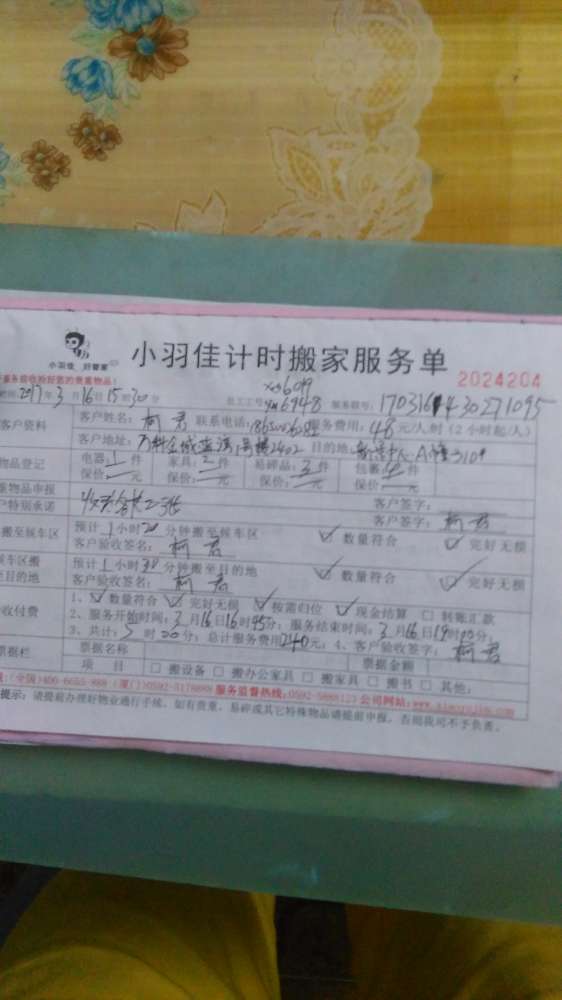 小羽佳 好管家
小羽佳计时搬家服务单
服务前收检好您的贵重物品！
2024204
xm6019
2017年3月16日15时30分 员工工号：xm6948 服务联号：
客户资料
客户姓名：柯君 联系电话： 服务费用：48元/人时（2小时起/人）
客户地址： 2402 目的地： 3109
物品登记
电器：1件 家具：2件 易碎品：3件 包裹： 件
保价： 元 保价： 元 保价： 元 保价： 元
贵重物品申报 客户签字：
客户特别承诺 客户签字：柯君
搬至候车区
预计1小时20分钟搬至候车区 ✓数量符合 ✓完好无损
客户验收签名：柯君
候车区搬至目的地
预计1小时30分钟搬至目的地 ✓数量符合 ✓完好无损
客户验收签名：柯君
验收付费
1、✓数量符合 ✓完好无损 ✓按需归位 ✓现金结算 □转账汇款
2、服务开始时间：3月16日16时45分；服务结束时间：3月16日19时 分；
3、共计： 时 分；总计服务费用240元；4、客户验收签字：柯君
票据栏
票据名称 票据金额
项目 □搬设备 □搬办公家具 □搬家具 □搬书 □其他：
（全国）400-6655-888（厦门）0592-3178888 服务监督热线：0592-5888123 公司网站：
提示：请提前办理好物业通行手续。如有贵重、易碎或其它特殊物品请提前申报，否则我司不予负责。